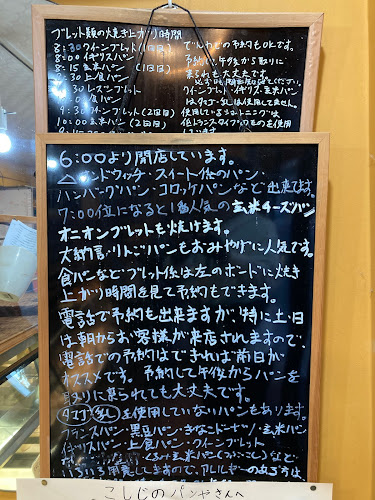 ブレット類の焼き上がり時間
クイーンブレット(1回目)
8:00 イギリスパン
8:15 玄米パン (1回目)
30 上食パン
30 レーズンブレット
食パン
9:30 ブレット(2回目)
10:00 玄米パン(2回目)
でんわでの予約もOKです。
予約して午後から取りに
来られても大丈夫です。
クイーンブレット・イギリス・玄米パン
は は使用してません。
使用しているショートニングは
低トランスタイプのものを使用
しています
6:00より開店しています。
サンドウィッチ・スイート係のパン・
ハンバーグパン・コロッケパンなど出来てます。
7:00位になると1番人気の玄米チーズパン
オニオンブレットも焼けます。
大納言・りんごパンもおみやげに人気です。
食パンなどブレット係は左のボードに焼き
上がり時間を見て予約もできます。
電話で予約も出来ますが、特に土・日
は朝からお客様が来店されますので、
電話での予約はできれば前日が
オススメです。予約して午後からパンを
取りに来られても大丈夫です。
タマゴ 乳 を使用していないパンもあります。
フランスパン・黒豆パン・きなこドーナツ・玄米パン
イギリスパン・上食パン・クイーンブレット
くるみ玄米パン(つぶあんこ)など
いろいろ用意してますので、アレルギーのある方は
こしじのパンやさんへ